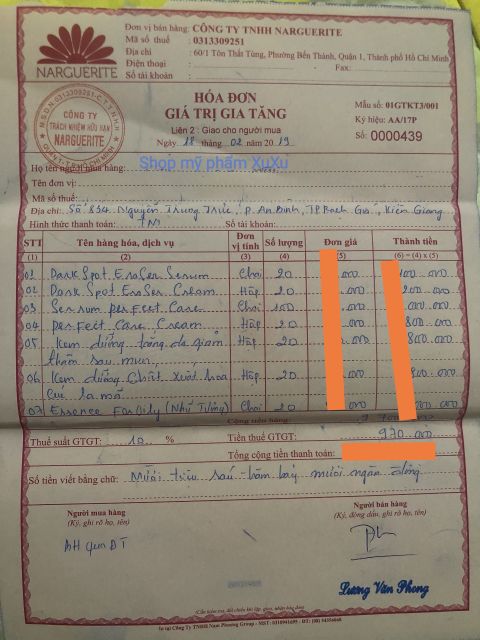 NARGUERITE
Đơn vị bán hàng: CÔNG TY TNHH NARGUERITE
Mã số thuế : 0313309251
Địa chỉ : 60/1 Tôn Thất Tùng, Phường Bến Thành, Quận 1, Thành phố Hồ Chí Minh
Điện thoại : Fax:
Số tài khoản :
HÓA ĐƠN
GIÁ TRỊ GIA TĂNG
Liên 2 : Giao cho người mua
Ngày 18 tháng 02 năm 2019
Mẫu số: 01GTKT3/001
Ký hiệu: AA/17P
Số: 0000439
M.S.D.N:0313309251-C.T.T.N.H.H
CÔNG TY
TRÁCH NHIỆM HỮU HẠN
NARGUERITE
Q.1-T.P HỒ CHÍ MINH
Họ tên người mua hàng:
Shop mỹ phẩm XuXu
Tên đơn vị:
Mã số thuế:
Địa chỉ: Số 834 Nguyễn Trung Trực, P. An Bình, TP Rạch Giá, Kiên Giang
Hình thức thanh toán: Số tài khoản:
STT Tên hàng hóa, dịch vụ Đơn vị tính Số lượng Đơn giá Thành tiền
(1) (2) (3) (4) (5) (6) = (4) x (5)
01 Dark Spot EraSer Serum Chai 20 000 000
02 Dark Spot EraSer Cream Hộp 20 000 000
03 Serum perfect Care Chai 100 000 000
04 Perfect Care Cream Hộp 20 000 800 000
05 Kem dưỡng trắng da giảm Hộp 20 000 800 000
thâm sau mụn
06 Kem dưỡng Chiết xuất hoa Hộp 20 000 000
cúc la mã
07 Essence For Oily (Nhũ Tương) Chai 20 000 000
Cộng tiền hàng:
Thuế suất GTGT: 10 % Tiền thuế GTGT: 970 000
Tổng cộng tiền thanh toán:
Số tiền viết bằng chữ: Mười triệu sáu trăm bảy mươi ngàn đồng
Người mua hàng Người bán hàng
(Ký, ghi rõ họ, tên) (Ký, đóng dấu, ghi rõ họ, tên)
BH qua ĐT
Lương Văn Phong
(Cần kiểm tra, đối chiếu khi lập, giao, nhận hóa đơn)